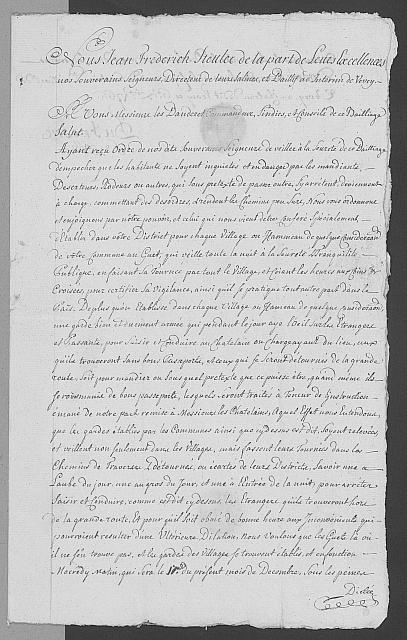 Nous Jean Frederich Steulet de la part de Leurs Excellences
nos Souverains Seigneurs, Directeur de leurs Salines, et Baillif ad Interim de Vevey
A Vous Messieurs les Banderet Commandeur, Sindics, et Conseils de ce Bailliage
Salut
Ayant reçu Ordre de nosdits Souverains Seigneurs de veiller à la Sureté de ce Bailliage
d'empecher que les habitants ne Soyent inquietés et endangés par les mandiants,
Deserteurs, Rodeurs ou autres, qui Sous pretexte de passer outre, Sy arretent, deviennent
à charge, commettent des desordres, et rendent les Chemins peu Surs. Nous vous ordonnons
et enjoignons par notre pouvoir, et celui qui nous vient d'etre Conferé Specialement,
d'Etablir dans vôtre District pour chaque Village ou Hammeau de quelque consideration
de vôtre Commune un Guet, qui veille toute la nuit à la Sureté et tranquilité
Publique, en faisant la Tournée par tout le Village, et criant les heures aux Coins &
Croisées pour certifier Sa Vigilance, ainsi qu'il se pratique tout autre part dans le
Païs. De plus qu'on Etablisse dans chaque Village ou Hameau de quelque consideration
une garde bien et duement armée qui pendant le jour aye l'Oeil Sur les Etrangers
et Passants, pour Saisir et Conduire au Chatelain ou Chargeayant du lieu, ceux
qu'ils trouveront Sans bons Passeports, et ceux qui se Seront detournés de la grande
route, Soit pour mandier ou Sous quel pretexte que ce puisse être, quand même ils
Seroient munis de bons passeports, lesquels Seront traités à Teneur de l'instruction
emané de notre part remise à Messieurs les Chatelains, A quel Effet nous entendons
que les gardes établies par les Communes ainsi que cy dessus est dit, Soyent relevées
et veillent non Seulement dans les Villages, mais fassent leurs Tournées dans les
Chemins de Traverse detournés, ou ecartés de leurs Districts, Savoir une a
l'aube du jour, une au gros du jour, et une à l'Entrée de la nuit, pour arrêter
Saisir et Conduire, comme est dit cy dessus, les Etrangers qu'ils trouveront hors
de la grande route, Et pour qu'il Soit obvié de bonne heure aux Inconvenients qui
pourroient resulter d'une Ulterieure Dilation, Nous voulons que les Guets là où
il ne s'en trouve pas, et les gardes des Villages se trouvent établis, et en fonction
Mecredy matin, qui Sera le du present mois de Decembre, Sous les peines